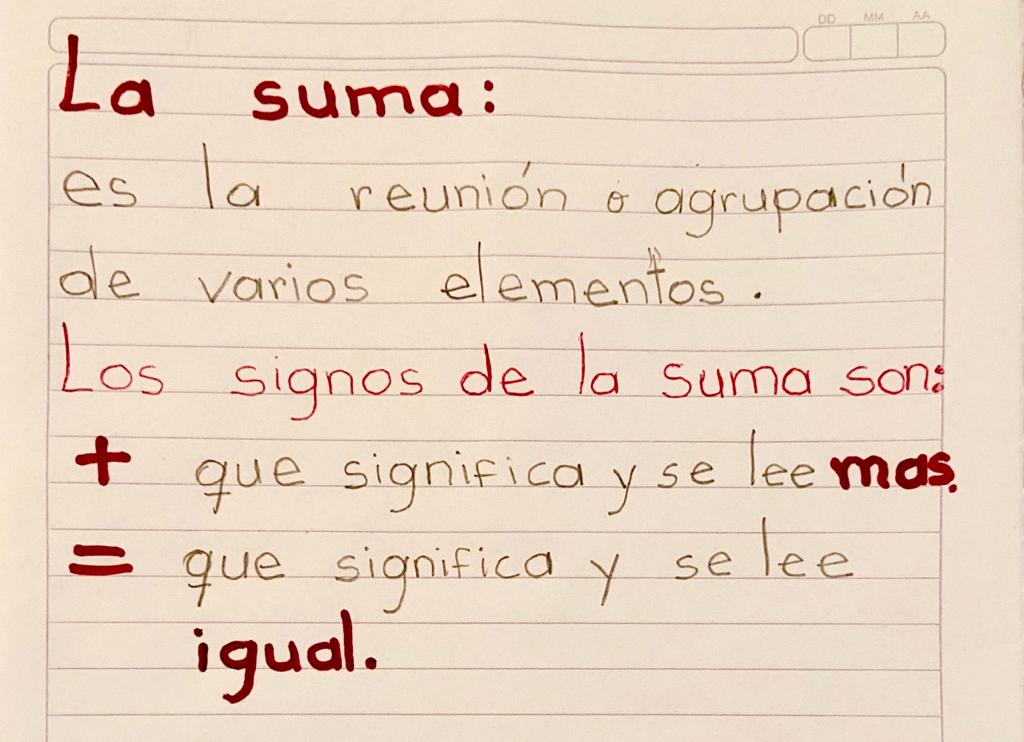 DD MM AA
La suma:
es la reunión ó agrupación
de varios elementos.
Los signos de la suma son:
+ que significa y se lee mas.
= que significa y se lee
igual.